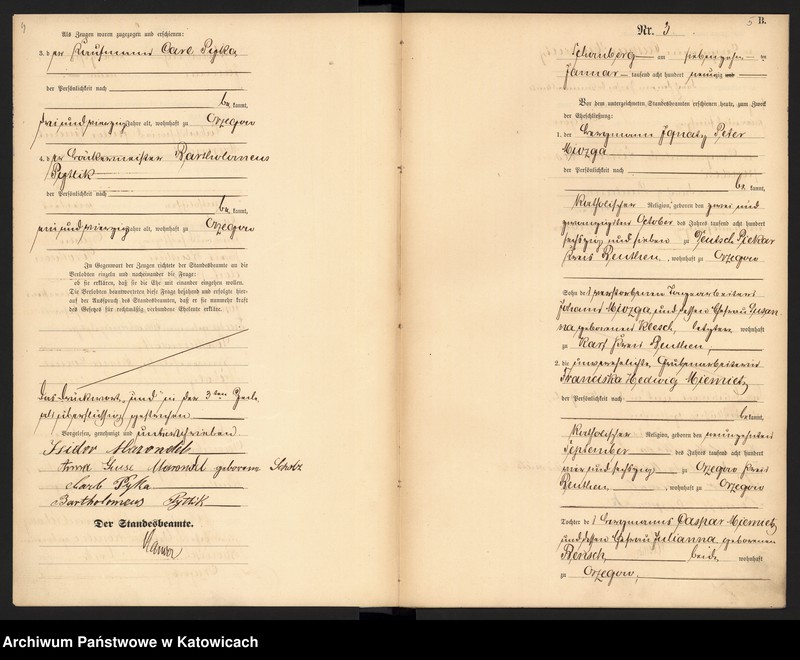 4
Als Zeugen waren zugezogen und erschienen:
3. der Kaufmann Carl Pyka
der Persönlichkeit nach
bekannt,
drei und vierzig Jahre alt, wohnhaft zu Orzegow
4. der Häuermeister Bartholomeus
Pyttlik
der Persönlichkeit nach
bekannt,
ein und vierzig Jahre alt, wohnhaft zu Orzegow
In Gegenwart der Zeugen richtete der Standesbeamte an die
Verlobten einzeln und nacheinander die Frage:
ob sie erklären, daß sie die Ehe mit einander eingehen wollen.
Die Verlobten beantworteten diese Frage bejahend und erfolgte hier-
auf der Ausspruch des Standesbeamten, daß er sie nunmehr kraft
des Gesetzes für rechtmäßig verbundene Eheleute erkläre.
das Druckwort "und" in der 3ten Zeile
als überflüssig gestrichen
Vorgelesen, genehmigt und unterschrieben
Isidor Marondel
Anna Marondel geborene Scholz
Carl Pyka
Bartholomeus Pyttlik
Der Standesbeamte.
5
B.
Nr. 3
Schomberg am siebenzehn ten
Januar tausend acht hundert neunzig und
Vor dem unterzeichneten Standesbeamten erschienen heute, zum Zweck
der Eheschließung:
1. der Bergmann Ignatz Peter
Miozga
der Persönlichkeit nach
bekannt,
katholischer Religion, geboren den zwei und
zwanzigsten October des Jahres tausend acht hundert
sechszig und sieben zu Deutsch Piekar
Kreis Beuthen, wohnhaft zu Orzegow
Sohn des verstorbenen Tagearbeiters
Johann Miozga und dessen Ehefrau Susan-
na geborenen Klesch, letztere wohnhaft
zu Karf Kreis Beuthen,
2. die unverehelichte Grubenarbeiterin
Franciska Hedwig Niemietz
der Persönlichkeit nach
bekannt,
katholischer Religion, geboren den neunzehnten
September des Jahres tausend acht hundert
vier und sechszig zu Orzegow Kreis
Beuthen, wohnhaft zu Orzegow
Tochter des Bergmanns Caspar Niemietz
und dessen Ehefrau Julianna geborenen
Bensch, beide wohnhaft
zu Orzegow,
Archiwum Państwowe w Katowicach